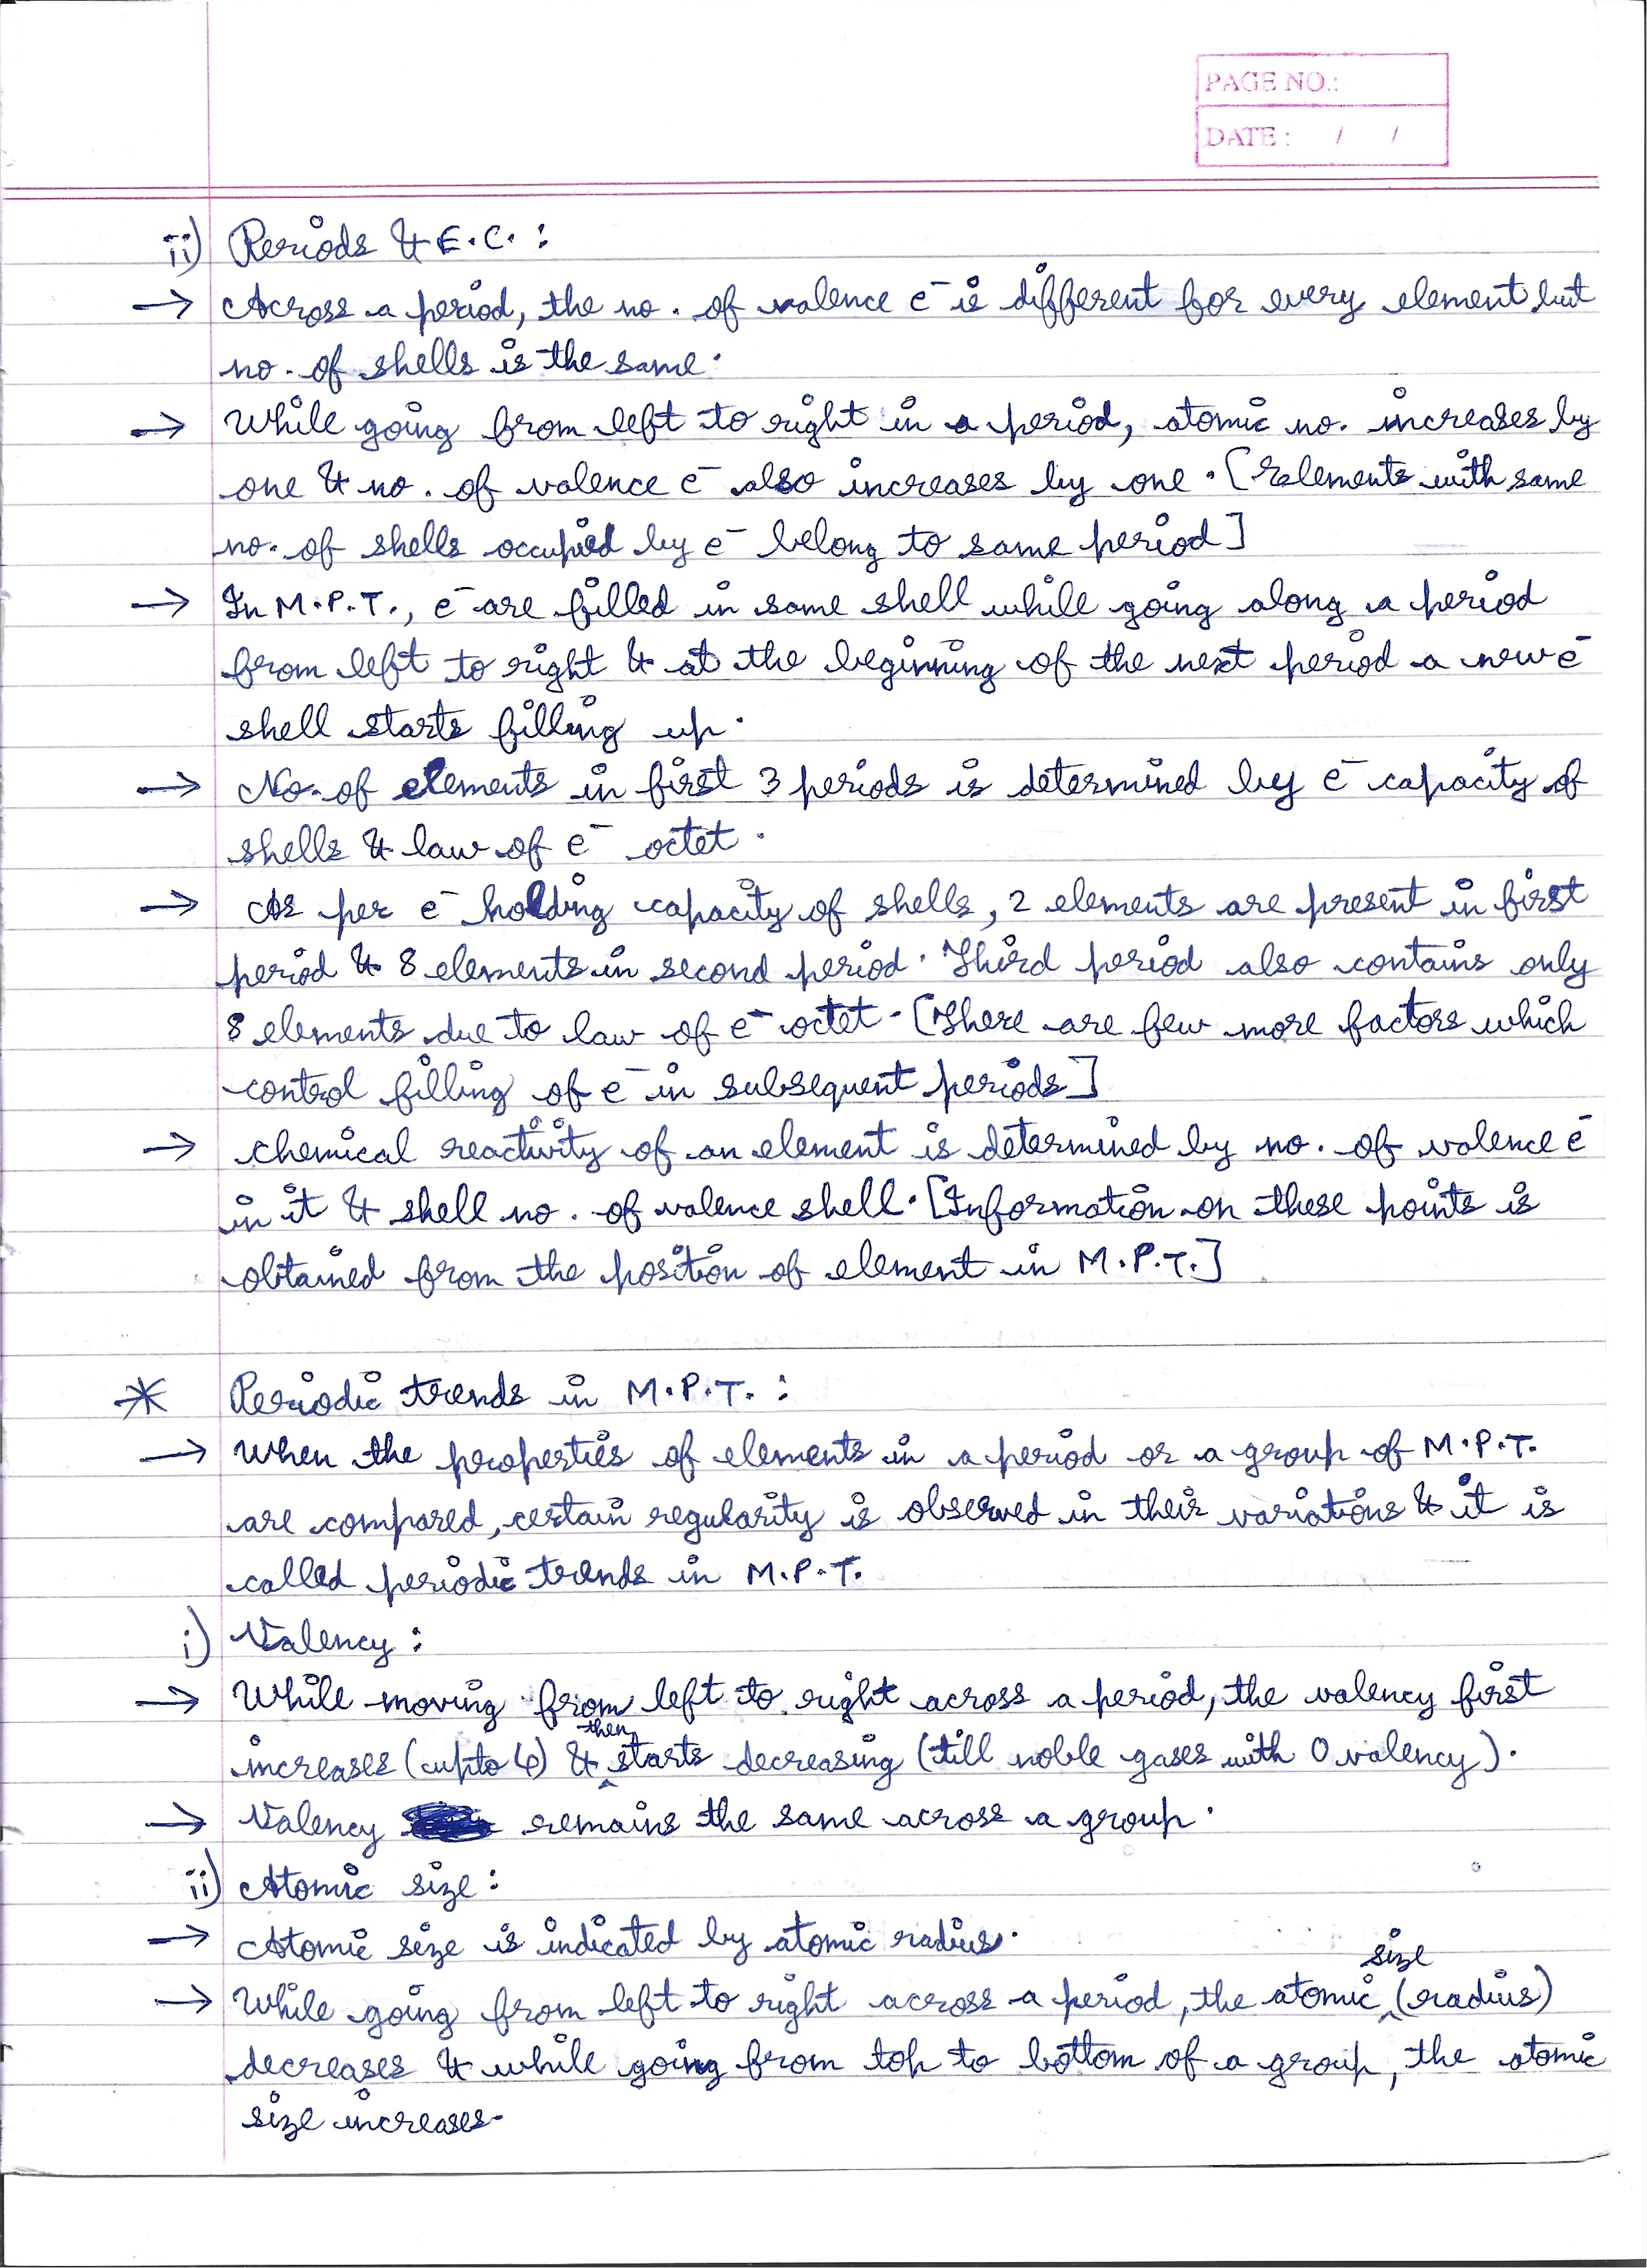 PAGE NO.:
DATE : / /
ii) Periods & E.C. :
→ Across a period, the no. of valence e⁻ is different for every element but
no. of shells is the same.
→ While going from left to right in a period, atomic no. increases by
one & no. of valence e⁻ also increases by one. [Elements with same
no. of shells occupied by e⁻ belong to same period]
→ In M.P.T., e⁻ are filled in same shell while going along a period
from left to right & at the beginning of the next period a new e⁻
shell starts filling up.
→ No. of elements in first 3 periods is determined by e⁻ capacity of
shells & law of e⁻ octet.
→ As per e⁻ holding capacity of shells, 2 elements are present in first
period & 8 elements in second period. Third period also contains only
8 elements due to law of e⁻ octet. [There are few more factors which
control filling of e⁻ in subsequent periods]
→ Chemical reactivity of an element is determined by no. of valence e⁻
in it & shell no. of valence shell. [Information on these points is
obtained from the position of element in M.P.T.]
* Periodic trends in M.P.T. :
→ When the properties of elements in a period or a group of M.P.T.
are compared, certain regularity is observed in their variations & it is
called periodic trends in M.P.T.
i) Valency :
→ While moving from left to right across a period, the valency first
increases (upto 4) & then starts decreasing (till noble gases with 0 valency).
→ Valency remains the same across a group.
ii) Atomic size :
→ Atomic size is indicated by atomic radius.
→ While going from left to right across a period, the atomic size (radius)
decreases & while going from top to bottom of a group, the atomic
size increases.